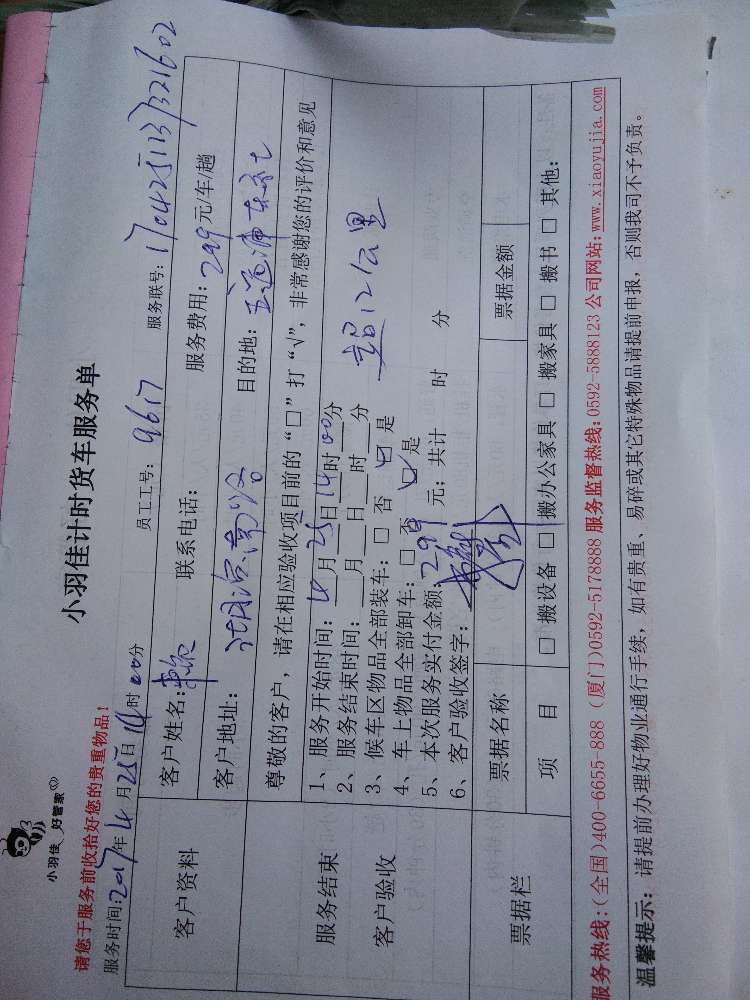 小羽佳 好管家
小羽佳计时货车服务单
请您于服务前收拾好您的贵重物品!
服务时间:2017年4月25日14时00分 员工工号: 9617 服务联号: 1704251137321602
客户资料 客户姓名: 联系电话: 服务费用: 299元/车/趟
客户地址: 湖滨南路 目的地: 五通浦东
尊敬的客户，请在相应验收项目前的“□”打“√”，非常感谢您的评价和意见
服务结束
客户验收
1、服务开始时间: 4月25日14时00分
2、服务结束时间: 月 日 时 分
3、候车区物品全部装车: □ 否 ☑ 是 超12公里
4、车上物品全部卸车: □ 否 ☑ 是
5、本次服务实付金额: 299 元; 共计 时 分
6、客户验收签字:
票据栏 票据名称 票据金额
项 目 □ 搬设备 □ 搬办公家具 □ 搬家具 □ 搬书 □ 其他:
服务热线:(全国)400-6655-888 (厦门)0592-5178888 服务监督热线:0592-5888123 公司网站:www.xiaoyujia.com
温馨提示: 请提前办理好物业通行手续，如有贵重、易碎或其它特殊物品请提前申报，否则我司不予负责。